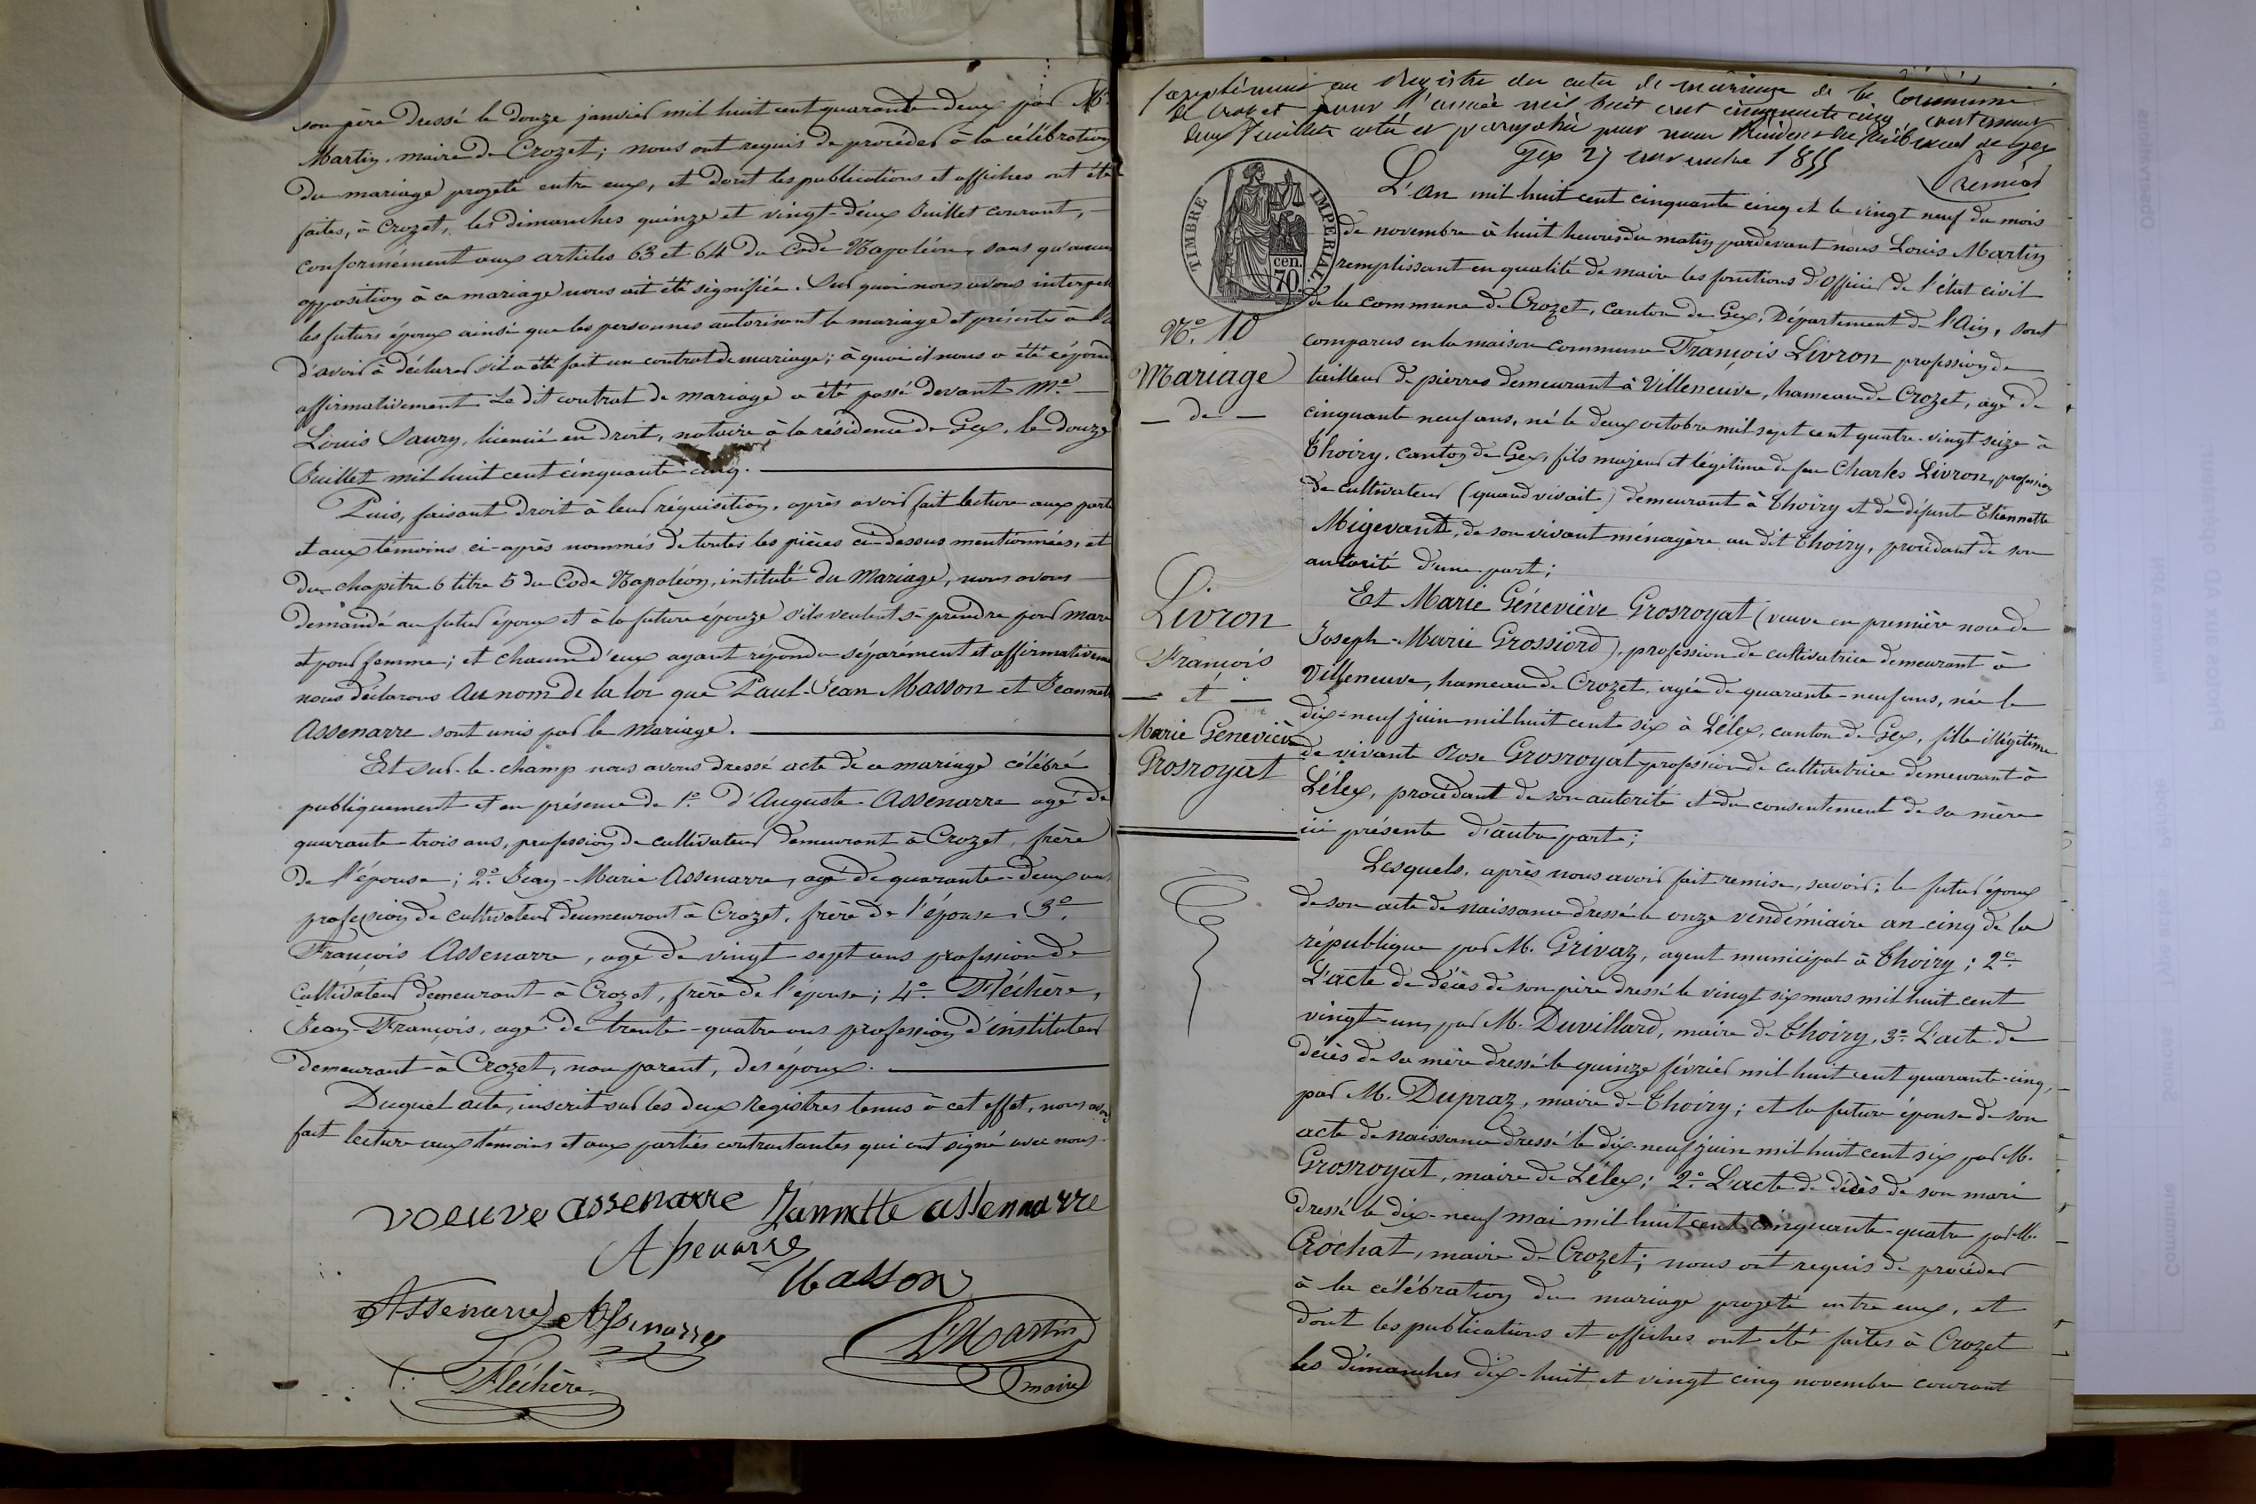 son père dressé le douze janvier mil huit cent quarante-deux par Mr
Martin, maire de Crozet; nous ont requis de procéder à la célébration
du mariage projeté entre eux, et dont les publications et affiches ont été
faites, à Crozet, les dimanches quinze et vingt-deux Juillet courant,
conformément aux articles 63 et 64 du Code Napoléon, sans qu'aucune
opposition à ce mariage nous ait été signifiée. Sur quoi nous avons interpel
les futurs époux ainsi que les personnes autorisant le mariage et présents à
d'avoir à déclarer s'il a été fait un contrat de mariage; à quoi il nous a été répond
affirmativement. Le dit contrat de mariage a été passé devant Me
Louis Saury, licencié en droit, notaire à la résidence de Gex, le douze
Juillet mil huit cent cinquante-cinq.
Puis, faisant droit à leur réquisition, après avoir fait lecture aux parti
et aux témoins ci-après nommés de toutes les pièces ci-dessus mentionnées, et
du chapitre 6 titre 5 du Code Napoléon, intitulé du Mariage, nous avons
demandé au futur époux et à la future épouze s'ils veulent se prendre pour mari
et pour femme; et chacun d'eux ayant répondu séparément et affirmativem
nous déclarons au nom de la loi que Paul-Jean Masson et Jeannette
Assenarre sont unis par le mariage.
Et sur-le-champ nous avons dressé acte de ce mariage célébré
publiquement et en présence de 1o d'Auguste Assenarre agé de
quarante-trois ans, profession de cultivateur demeurant à Crozet, frère
de l'épouse; 2o Jean-Marie Assenarre, agé de quarante-deux ans
profession de cultivateur demeurant à Crozet, frère de l'épouse, 3o
François Assenarre, agé de vingt-sept ans profession de
Cultivateur demeurant à Crozet, frère de l'épouse; 4o Fléchère,
Jean-François, agé de trente-quatre ans profession d'instituteur
demeurant à Crozet, non parent, des époux.
Duquel acte, inscrit sur les deux registres tenus à cet effet, nous avons
fait lecture aux témoins et aux parties contractantes qui ont signé avec nous.
voeuve assenarre Jannette assennarre
Assenarre
Masson
Assenarre Assenarre
L Martin
Fléchère
maire
Supplément au Registre des actes de mariage de la Commune
de Crozet pour l'année mil huit cent cinquante cinq, contenant
deux feuillets coté et paraphé par nous Président du Tribunal de Gex
Gex 27 novembre 1855
TIMBRE IMPERIAL
cen. 70
L'an mil huit cent cinquante cinq et le vingt neuf du mois
de novembre à huit heures du matin pardevant nous Louis Martin
remplissant en qualité de maire les fonctions d'Officier de l'état civil
de la commune de Crozet, canton de Gex, Département de l'Ain, sont
No. 10
Mariage
— de —
Livron
François
— et —
Marie Geneviève
Grosroyat
comparus en la maison commune François Livron profession de
tailleur de pierres demeurant à Villeneuve, hameau de Crozet, agé de
cinquante neuf ans, né le deux octobre mil sept cent quatre-vingt seize à
Thoiry, canton de Gex, fils majeur et légitime de feu Charles Livron, profession
de cultivateur (quand vivait) demeurant à Thoiry et de défunte Etiennette
Migevant, de son vivant ménagère au dit Thoiry, procédant de son
autorité d'une part;
Et Marie Géneviève Grosroyat (veuve en première noce de
Joseph-Marie Grossiord), profession de cultivatrice demeurant à
Villeneuve, hameau de Crozet, agée de quarante-neuf ans, née le
dix-neuf juin mil huit cent six à Lélex, canton de Gex, fille illégitime
de vivante Rose Grosroyat profession de cultivatrice demeurant à
Lélex, procédant de son autorité et du consentement de sa mère
ici présente d'autre part;
Lesquels, après nous avoir fait remise, savoir: le futur époux
de son acte de naissance dressé le onze vendémiaire an-cinq de la
république par M. Grivaz, agent municipal à Thoiry; 2o
L'acte de décès de son père dressé le vingt six mars mil huit cent
vingt-un, par M. Duvillard, maire de Thoiry, 3o L'acte de
décès de sa mère dressé le quinze février mil huit cent quarante-cinq,
par M. Dupraz, maire de Thoiry; et la future épouse de son
acte de naissance dressé le dix-neuf juin mil huit cent six par M.
Grosroyat, maire de Lélex; 2o L'acte de décès de son mari
dressé le dix-neuf mai mil huit cent cinquante-quatre par M.
Rochat, maire de Crozet; nous ont requis de procéder
à la célébration du mariage projeté entre eux, et
dont les publications et affiches ont été faites à Crozet
les dimanches dix-huit et vingt cinq novembre courant